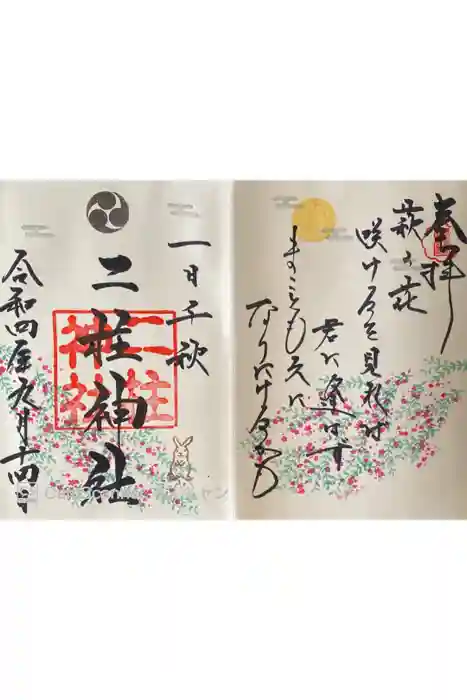 奉拝
萩が花
咲けるを見れば
君に逢はず
まことも久に
なりにけるかも
一日千秋
二柱神社
二柱
神社
令和四年九月十四日